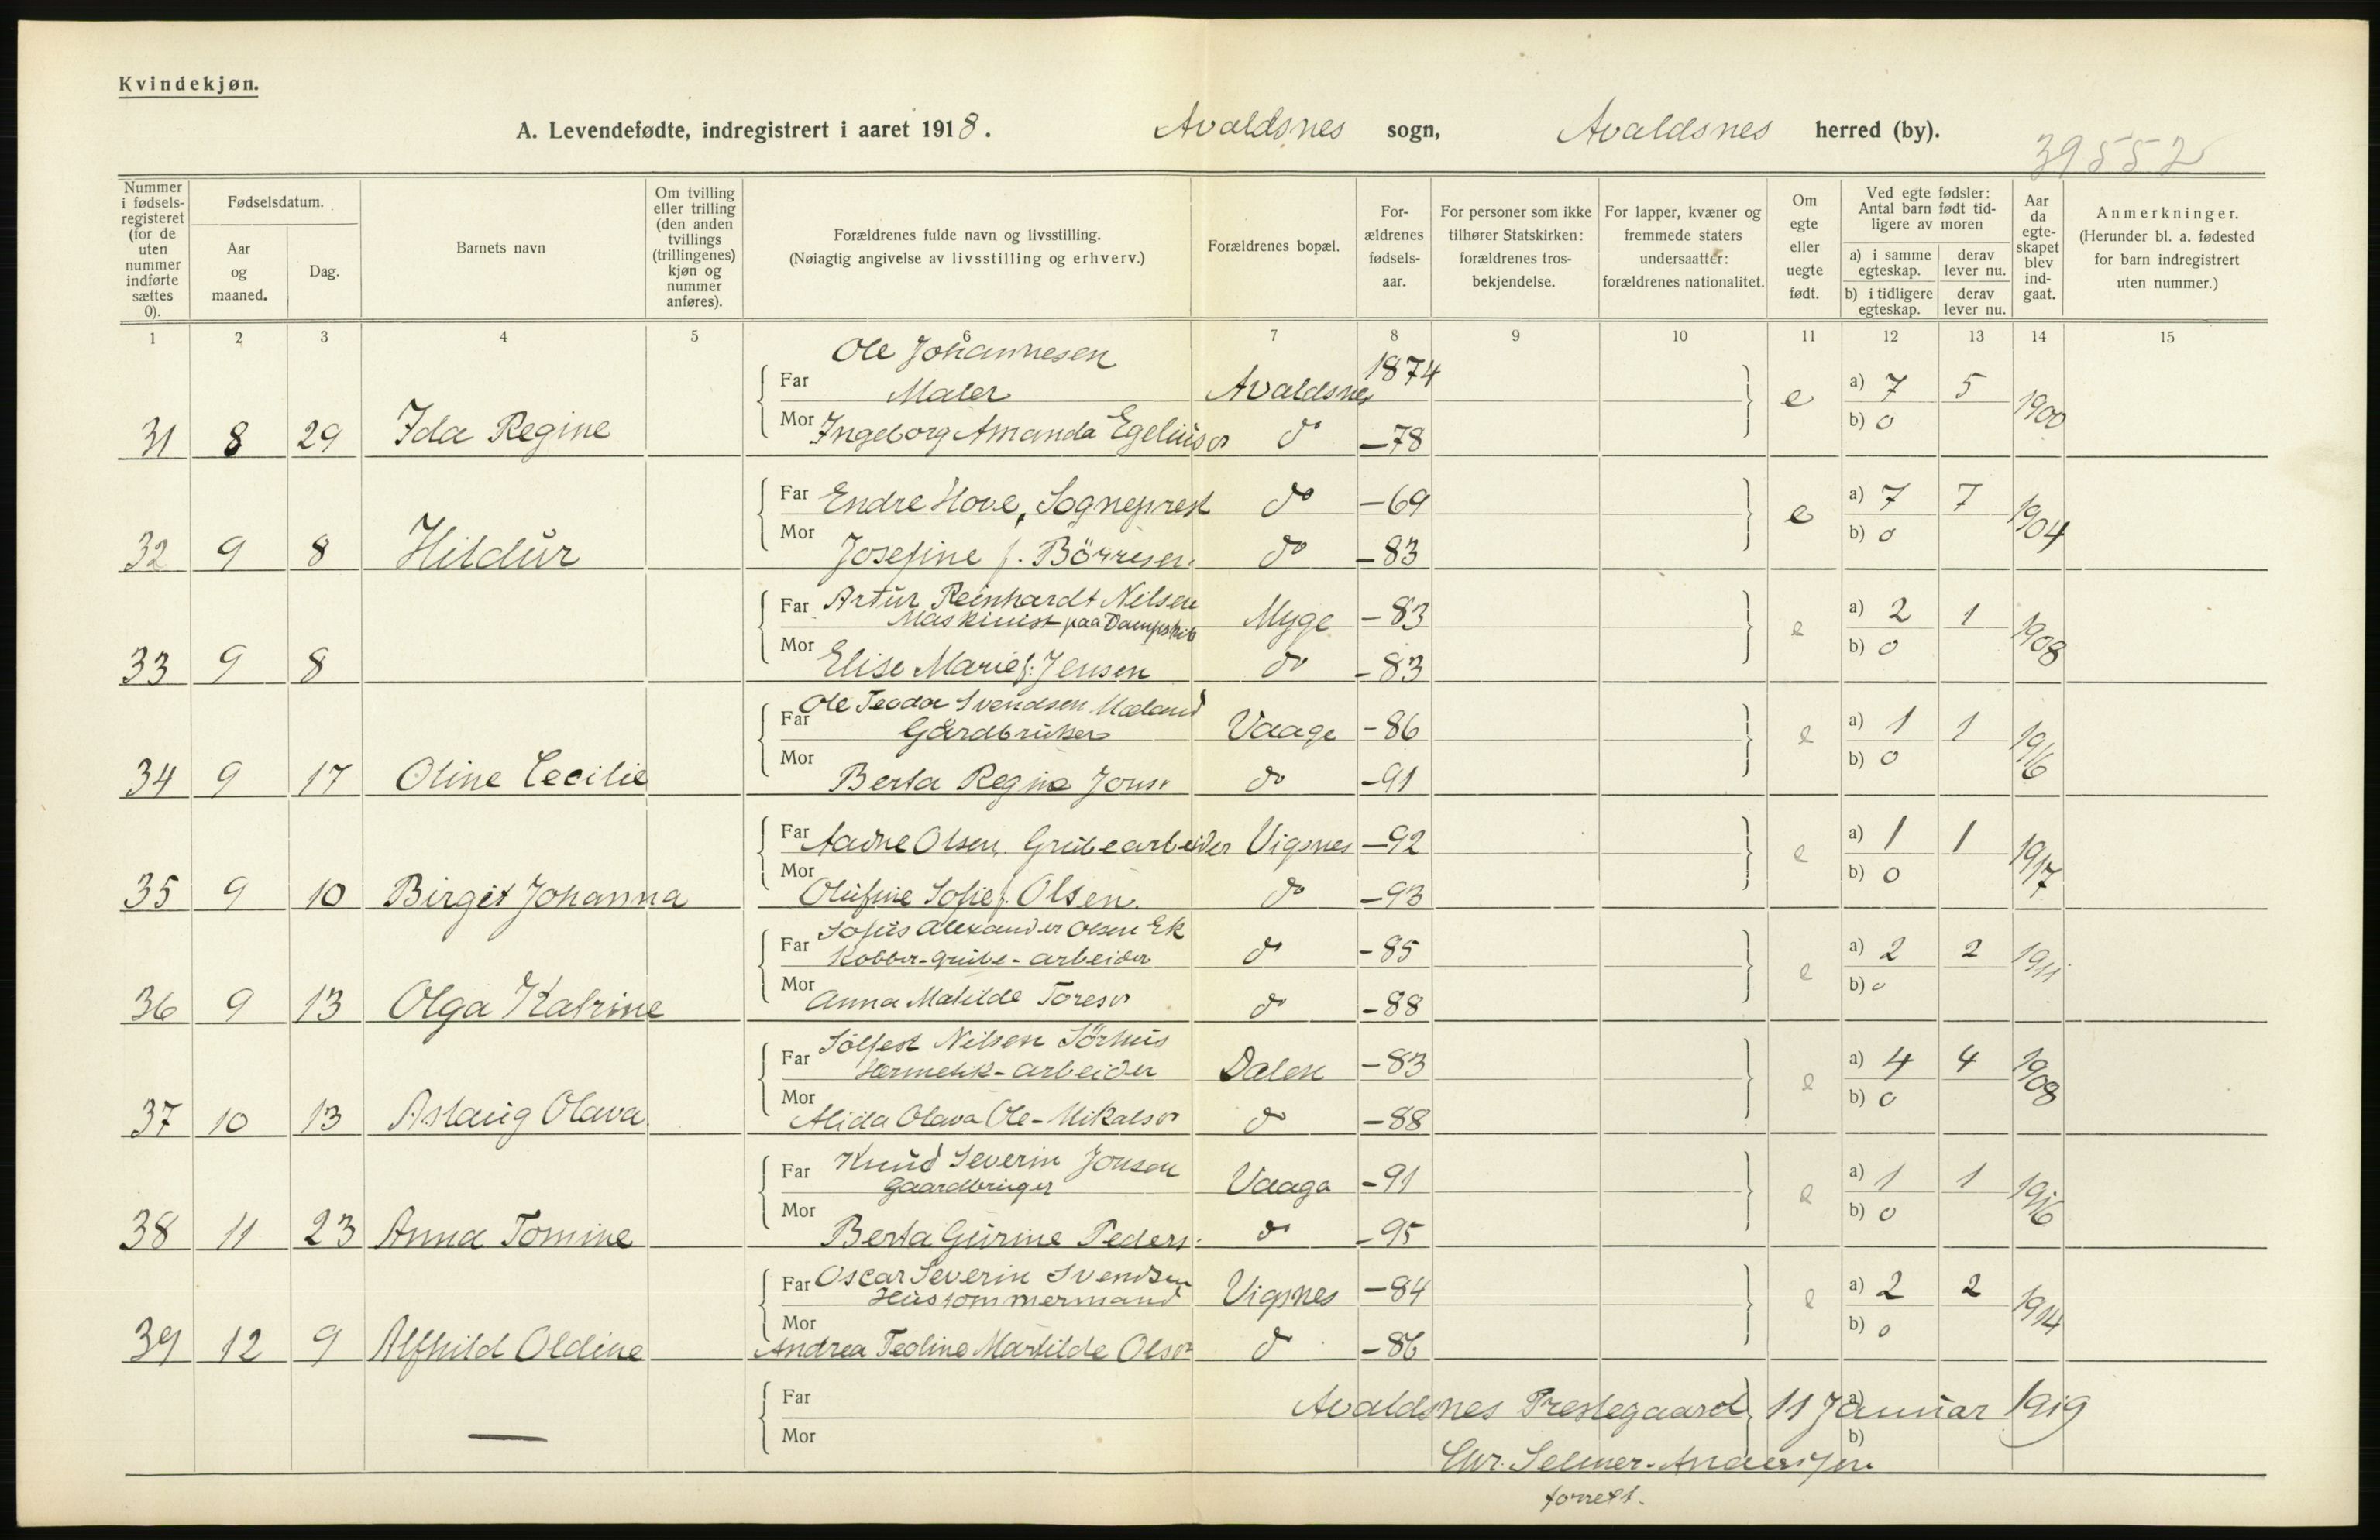 Kvindekjøn.
A. Levendefødte, indregistrert i aaret 1918. Avaldsnes sogn, Avaldsnes herred (by).
39552
Nummer i fødselsregisteret (for de uten nummer indførte sættes 0).
Fødselsdatum.
Aar og maaned.
Dag.
Barnets navn
Om tvilling eller trilling (den anden tvillings (trillingenes) kjøn og nummer anføres).
Forældrenes fulde navn og livsstilling.
(Nøiagtig angivelse av livsstilling og erhverv.)
Forældrenes bopæl.
Forældrenes fødselsaar.
For personer som ikke tilhører Statskirken: forældrenes trosbekjendelse.
For lapper, kvæner og fremmede staters undersaatter: forældrenes nationalitet.
Om egte eller uegte født.
Ved egte fødsler: Antal barn født tidligere av moren
a) i samme egteskap. derav lever nu.
b) i tidligere egteskap. derav lever nu.
Aar da egteskapet blev indgaat.
Anmerkninger.
(Herunder bl. a. fødested for barn indregistrert uten nummer.)
1 2 3 4 5 6 7 8 9 10 11 12 13 14 15
Ole Johannesen
Far Maler Avaldsnes 1874 e a) 7 5 1900
31 8 29 Ida Regine Mor Ingeborg Amanda Egeliusdr do -78 b) 0
Far Endre Hove, Sogneprest do -69 e a) 7 7 1904
32 9 8 Hildur Mor Josefine f. Börresen do -83 b) 0
Far Artur Reinhardt Nilsen
Maskinist paa Dampskib Myge -83 e a) 2 1 1908
33 9 8 Mor Elise Marie f. Jensen do -83 b) 0
Far Ole Teodor Svendsen Mæland
Gårdbruker Vaage -86 e a) 1 1 1916
34 9 17 Oline Cecilie Mor Berta Regine Jonsdr do -91 b) 0
Far Aadne Olsen Grubearbeider Vigsnes -92 e a) 1 1 1917
35 9 10 Birgit Johanna Mor Olufine Sofie f. Olsen do -93 b) 0
Far Sofus Alexander Olsen Ek
Kobber-grube-arbeider do -85 e a) 2 2 1911
36 9 13 Olga Katrine Mor Anna Matilde Toresdr do -88 b) 0
Far Solfest Nilsen Sörhus
Hermetik-arbeider Dalen -83 e a) 4 4 1908
37 10 13 Aslaug Olava Mor Alida Olava Ole-Mikalsdr do -88 b) 0
Far Knud Severin Jonsen
Gaardbruger Vaaga -91 e a) 1 1 1916
38 11 23 Anna Tomine Mor Berta Gurine Peders. do -95 b) 0
Far Oscar Severin Svendsen
Hustömmermand Vigsnes -84 e a) 2 2 1914
39 12 9 Alfhild Oldine Mor Andrea Teoline Matilde Olsdr do -86 b) 0
Far Avaldsnes Prestegaard, 11 Januar 1919 a)
Mor b)
Chr. Selmer-Anderssen